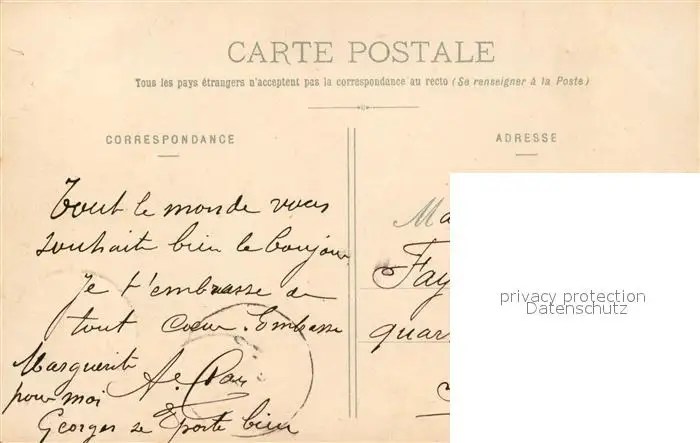 CARTE POSTALE
Tous les pays étrangers n'acceptent pas la correspondance au recto (Se renseigner à la Poste)
CORRESPONDANCE
ADRESSE
Tout le monde vous
souhaite bien le bonjour
Je t'embrasse de
tout cœur. Embrasse
Marguerite
pour moi
Georges se porte bien
Ma
Fay
quar
privacy protection
Datenschutz